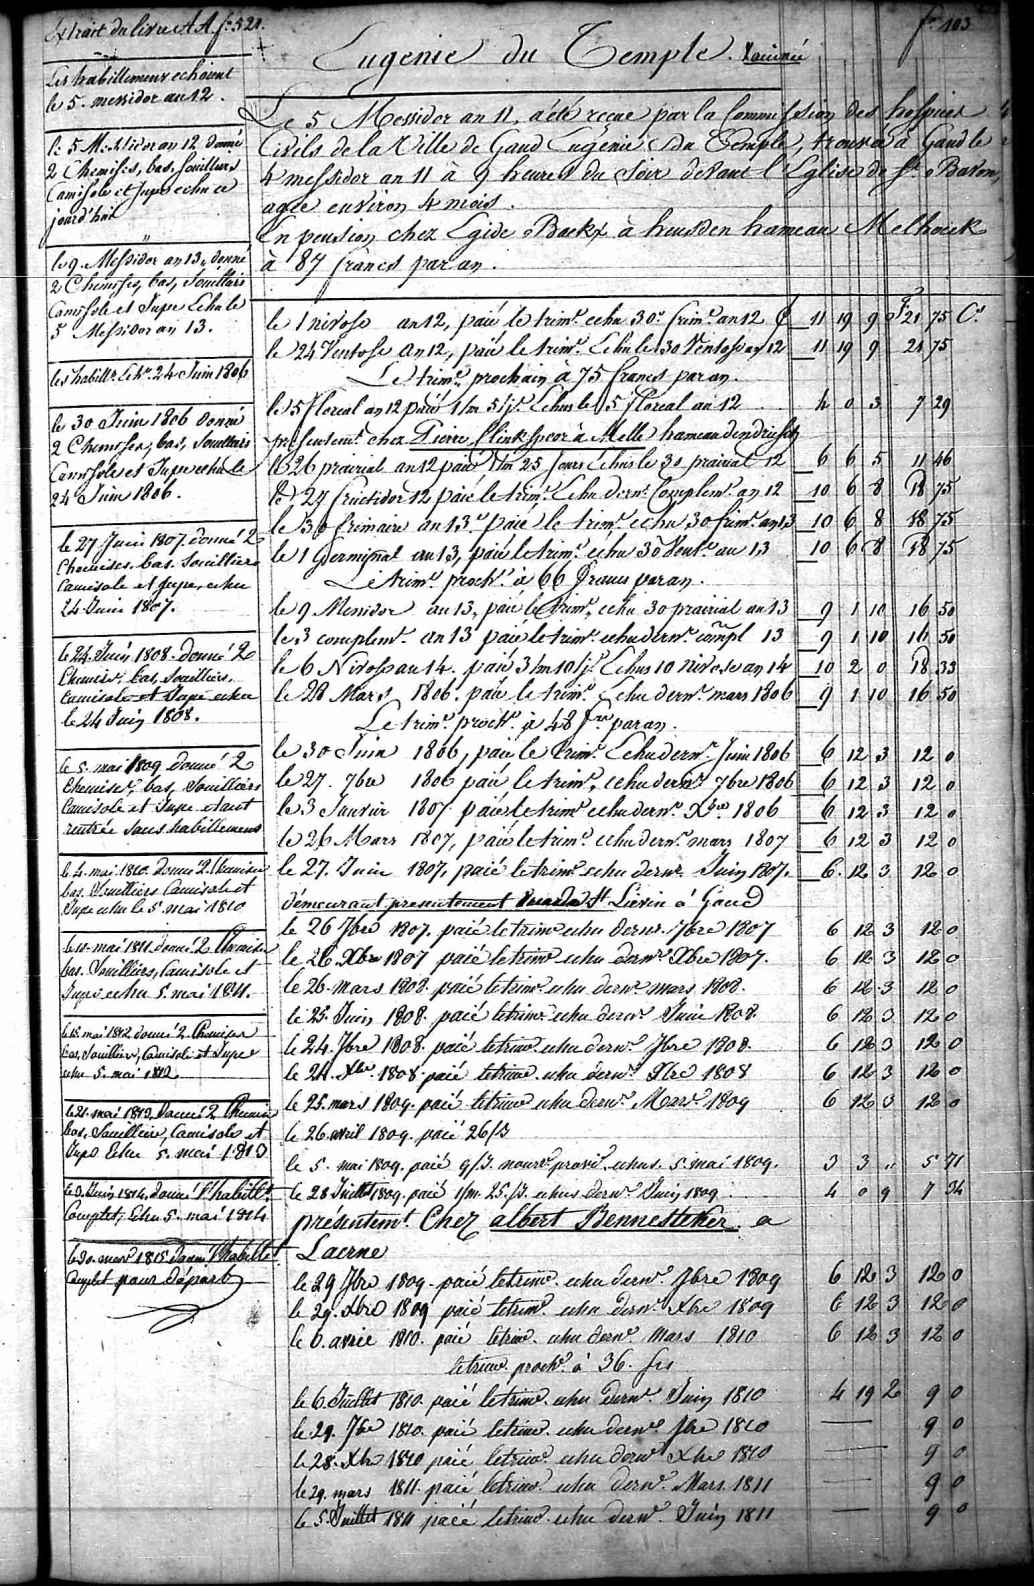 Extrait du livre AA. fo. 521.
Les habillemens echoient
le 5. messidor an 12.
le 5 Messidor an 12 donné
2 Chemises, bas, souilliers
Camisole et Jupe echu ce
jourd'hui
le 9. Messidor an 13, donné
2 Chemises, bas, souilliers
Camisole et Jupe Echu le
5 Messidor an 13.
les habillr. Echt. 24 Juin 1806
le 30 Juin 1806 donné
2 Chemises, bas, souilliers
Camisole et Jupe echu le
24 Juin 1806.
le 27 Juin 1807. donné 2
Chemises. bas. souilliers
Camisole et Jupe, echu
24 Juin 1807.
le 24. Juin 1808. donné 2
Chemises, bas, souilliers,
Camisole et Jupe echu
le 24 Juin 1808.
le 5. mai 1809 donné 2
Chemises, bas, souilliers
Camisole et Jupe etant
rentrée sans habillemens
le 4. mai 1810. donné 2. Chemises
bas. souilliers Camisole et
Jupe echu le 5. mai 1810
le 10. mai 1811. donné 2 Chemises
bas. souilliers, Camisole et
Jupe echu 5. mai 1811.
le 15. mai 1812 donné 2. Chemises
bas, souilliers, Camisole et Jupe
echu 5. mai 1812
le 21. mai 1813. donné 2 Chemises
bas, souilliers, Camisole et
Jupe Echu 5. mai 1813
le 3. Juin 1814. donné l'habillt.
Complet, Echu 5. mai 1814
le 30. mars 1815 donné l'habillet
Complet pour départ
fo. 103
Eugenie du Temple. Vaccinée
Le 5 Messidor an 11, a été reçue par la Commission des hospices
Civils de la Ville de Gand Eugénie du Temple, trouvée à Gand le
4 messidor an 11 à 9 heures du Soir devant l'Eglise de St. Bavon,
agée environ 4 mois.
En pension chez Egide Backx à heusden hameau Melhoek
à 87 francs par an.
le 1 nivose an 12, paié le trimr. echu 30. frimr. an 12 £ 11 19 9 f 21 75 Cs.
le 24 Ventose an 12, paié le trimr. Echu le 30 Ventose an 12 11 19 9 21 75
Le trimr. prochain à 75 francs par an.
le 5 floreal an 12 paié 1/m 5/jr. Echus le 5 floreal an 12 4 0 3 7 29
presentemt. chez Pierre Clinkspoor à Melle hameau dendriesch
le 26 prairial an 12 paié 1/m 25 jours échus le 30 prairial 12 6 6 5 11 46
le 27 fructidor 12 paié le trimr. Echu dernr. Complemr. an 12 10 6 8 18 75
le 30 frimaire an 13. paié le trimr. echu 30 frimr. an 13 10 6 8 18 75
le 1 Germinal an 13, paié le trimr. échu 30 Ventr. an 13 10 6 8 18 75
Le trimr. procht. à 66 francs par an.
le 9 Messidor an 13, paié le trimr. echu 30 prairial an 13 9 1 10 16 50
le 3 complemr. an 13 paié le trimr. echu dernr. compl 13 9 1 10 16 50
le 6 Nivose an 14. paié 3/m 10/jr. Echus 10 nivose an 14 10 2 0 18 33
le 28 Mars 1806. paié le trimr. Echu dernr. mars 1806 9 1 10 16 50
Le trimr. procht. à 48 frcs par an.
le 30 Juin 1806, paié le trimr. Echu dernr. Juin 1806 6 12 3 12 0
le 27. 7bre 1806 paié le trimr. echu dernr. 7bre 1806 6 12 3 12 0
le 3 Janvier 1807 paié le trimr. echu dernr. Xbre 1806 6 12 3 12 0
le 26 Mars 1807, paié le trimr. echu dernr. mars 1807 6 12 3 12 0
le 27. Juin 1807, paié le trimr. echu dernr. Juin 1807. 6 12 3 12 0
démeurant presentement St. Liévin à Gand
le 26 7bre 1807. paié le trimr. echu dernr. 7bre 1807 6 12 3 12 0
le 26. Xbre 1807 paié le trimr. echu dernr. Xbre 1807. 6 12 3 12 0
le 26. mars 1808. paié le trimr. echu dernr. mars 1808. 6 12 3 12 0
le 25. Juin 1808. paié le trimr. echu dernr. Juin 1808. 6 12 3 12 0
le 24. 7bre 1808. paié le trimr. echu dernr. 7bre 1808. 6 12 3 12 0
le 24. Xbre 1808. paié le trimr. echu dernr. Xbre 1808 6 12 3 12 0
le 25. mars 1809. paié le trimr. echu dernr. Mars. 1809 6 12 3 12 0
le 26 avril 1809. paié 26/J
le 5. mai 1809. paié 9/J. nourr. provisr. echus. 5. mai 1809. 3 3 " 5 71
le 28 Juillet 1809. paié 1/m. 25./J. echus dernr. Juin 1809. 4 0 9 7 34
présentemt. Chez albert Bennesteker a
Laerne
le 29 7bre 1809. paié le trimr. echu dernr. 7bre 1809 6 12 3 12 0
le 29. Xbre 1809 paié le trimr. echu dernr. Xbre 1809 6 12 3 12 0
le 6. avril 1810. paié le trimr. echu dernr. mars 1810 6 12 3 12 0
le trimr. procht. à 36. frs
le 6. Juillet 1810 paié le trimr. echu dernr. Juin 1810 4 19 2 9 0
le 29. 7bre 1810. paié le trimr. echu dernr. 7bre 1810 9 0
le 28. Xbre 1810 paié le trimr. echu dernr. Xbre 1810 9 0
le 29. mars 1811. paié le trimr. echu dernr. Mars. 1811 9 0
le 5. Juillet 1811 paié le trimr. echu dernr. Juin 1811 9 0